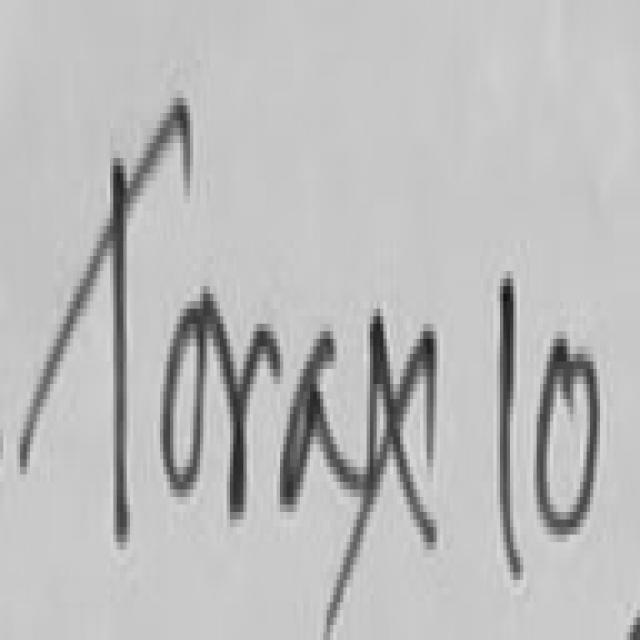 Torax 10